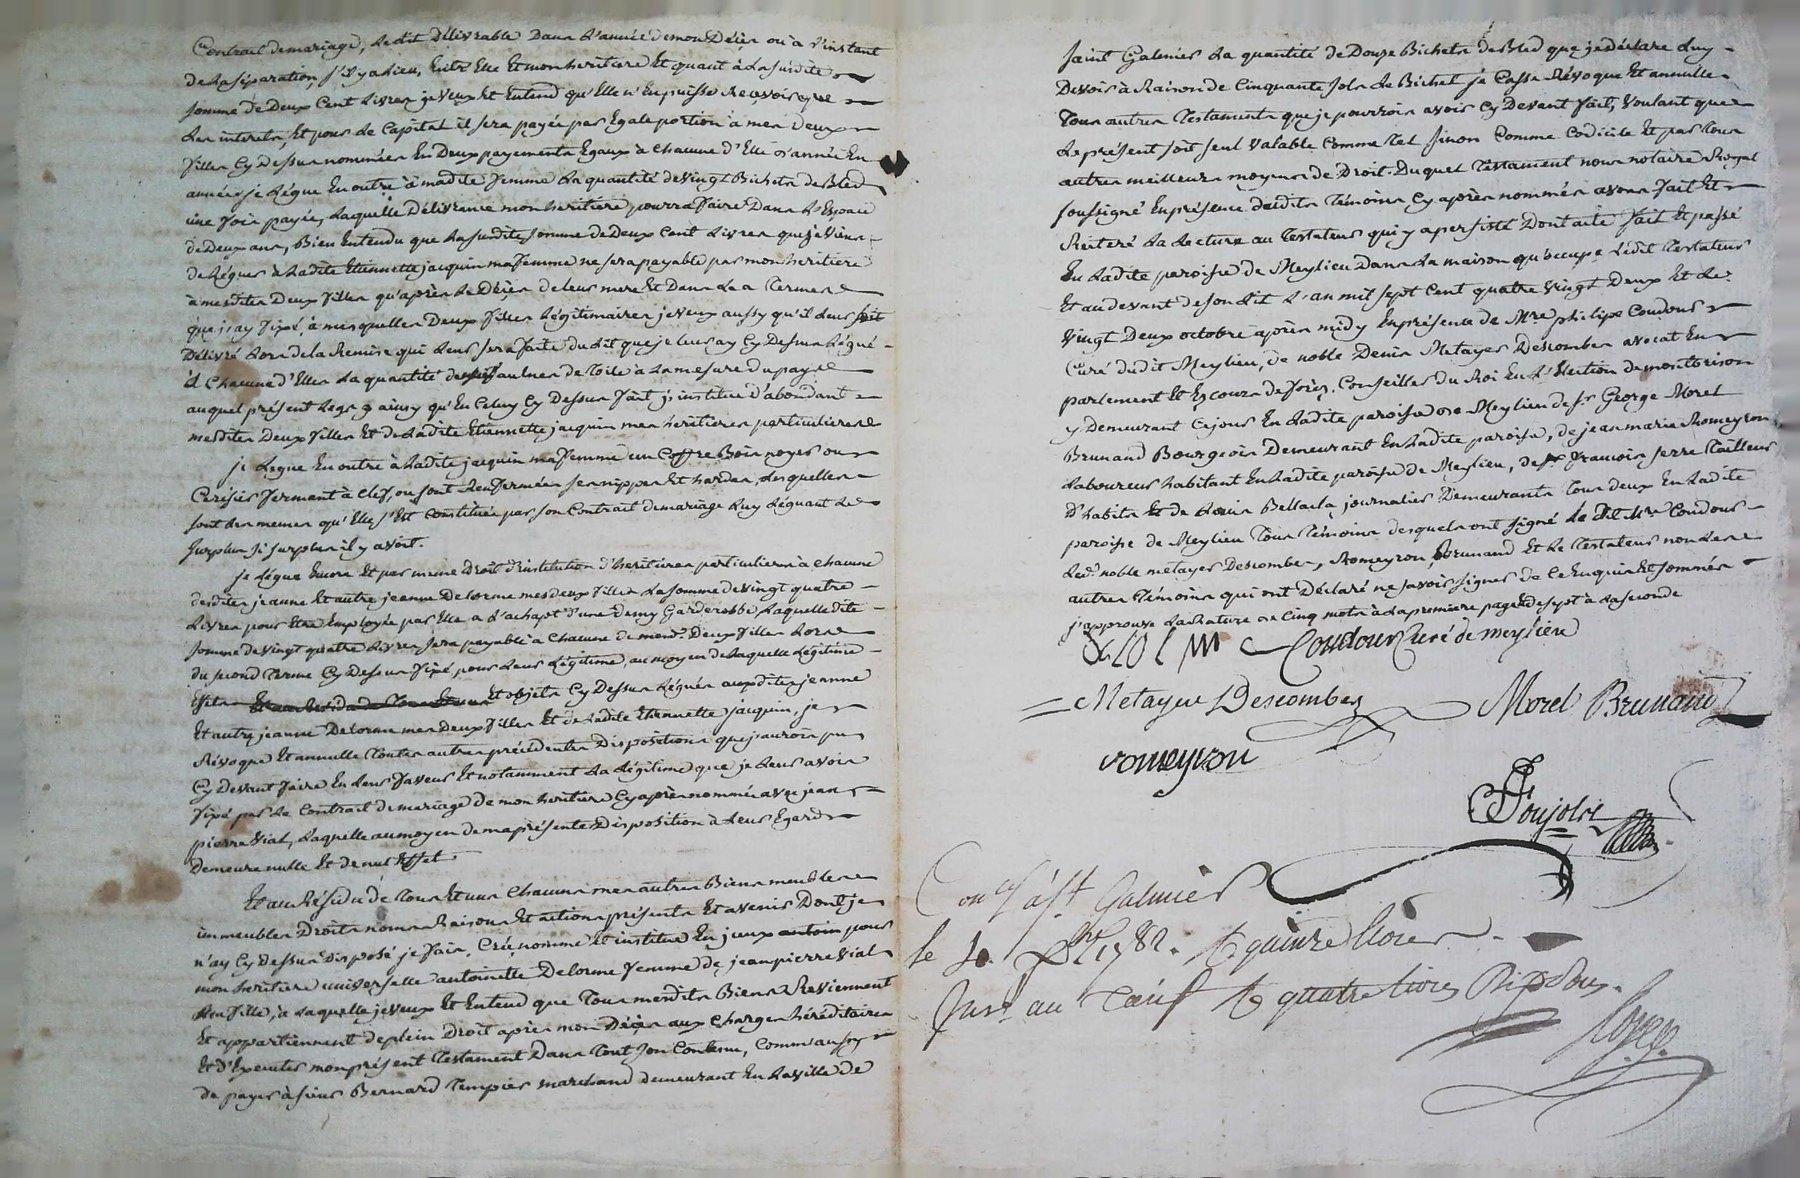 Contrait de mariage, Ledit Délivrable Dans L'année de mon Décès ou à L'instant
de La séparation, s'il y a Lieu, Entre Elle Et mon heritiere Et quant à La susdite
somme de Deux Cent Livres je veux Et Entend qu'Elle n'En puisse Recevoir que
Les interets, Et pour Le Capital il sera payée par Egale portion à mes deux
filles Cy Dessus nommées En Deux payements Egaux à Chacune d'Elle D'année En
année je Légue En outre à madite femme La quantité de vingt Bichets de Bled
une fois payée, Laquelle Délivrance mon heritiere pourra faire Dans L'Espace
de Deux ans, Bien Entendu que La susdite somme de Deux Cent Livres que je viens
de Léguer à Ladite Etiennette jacquin ma femme ne sera payable par mon heritiere
à mesdites Deux filles qu'après Le Décès de Leur mere Et Dans Les Termes
que j'ay fixé, à mesquelles Deux filles Légitimaires je veux aussy qu'il Leur soit
Délivré Lors de La Remise qui Leur sera faite du Lit que je Leur ay Cy Dessus Légué
à Chacune d'Elles La quantité de aulnes de Toile à La mesure du pays
auquel présent Legs ainsy qu'En Celuy Cy Dessus fait j'institue d'abondant
mesdites Deux filles Et De Ladite Etiennette jacquin mes héritieres particulieres
je Légue En outre à Ladite jacquin ma femme un Coffre Bois noyer ou
Cerisier fermant à Clef, ou sont Renfermées ses nippes Et hardes, Lesquelles
sont Les memes qu'Elle s'Est Constituée par son Contrait de mariage Luy Léguant Le
surplus si surplus il y avoit.
je Légue Encore Et par meme Droit d'institution d'heritieres particulieres à Chacune
desdites jeanne Et autre jeanne Delorme mes deux filles La somme de vingt quatre
Livres pour Etre Employée par Elle a L'achapt d'une Demy Garderobbe Laquelle dite
somme de vingt quatre Livres sera payable à Chacune de mesd. Deux filles Lors
du second Terme Cy Dessus fixé, pour Leur Légitime, au moyen de Laquelle Légitime
Effets Et objets Cy Dessus Légués auxdites jeanne
Et autre jeanne Delorme mes Deux filles Et de Ladite Etiennette jacquin, je
Révoque Et annulle Toutes autres précédentes Dispositions que j'aurois pu
Cy Devant faire En Leur faveur Et notamment La Légitime que je Leur avois
fixé par Le Contrait de mariage de mon heritiere Cy après nommée avec jean
pierre Vial, Laquelle au moyen de ma présente Disposition à Leur Egard
Demeure nulle Et de nul Effet
Et au Résidu de Tous Et uns Chacuns mes autres Biens meubles
immeubles Droits noms Raisons Et actions présents Et avenir Dont je
n'ay Cy Dessus Disposé je fais, Crée, nomme Et institue En jceux antoin pour
mon heritiere universelle antoinette Delorme femme de jean pierre Vial
ma fille, à Laquelle je veux Et Entend que Tous mesdits Biens Reviennent
Et appartiennent de plein Droit après mon Décès aux Charges héréditaires
Et d'Executer mon présent Testament Dans Tout son Contenu, Comm'aussy
de payer à sieur Bernard Tempier marchand demeurant En La ville de
saint Galmier La quantité de Douze Bichets de Bled que je déclare Luy
Devoir à Raison de Cinquante sols Le Bichet je Casse Révoque Et annulle
Tous autres Testaments que je pourrois avoir Cy Devant fait, Voulant que
Le présent soit seul valable Comme Tel sinon Comme Codicile Et par Tous
autres meilleurs moyens de Droit. Duquel Testament nous notaire Royal
soussigné En présence desdits Témoins Cy après nommés avons fait Et
Réiteré La Lecture au Testateur qui y a persisté Dont acte fait Et passé
En Ladite paroisse de Meylieu Dans La maison qu'occupe Ledit Testateur
Et au devant de son Lit L'an mil sept Cent quatre vingt Deux Et Le
Vingt Deux octobre après midy En présence de Mre philipe Coudour
Curé dudit Meylieu, de noble Denis Metayer Descombes avocat En
parlement Et Es cours de forez, Conseiller du Roi En L'Election de montbrison
y Demeurant Ce jour En Ladite paroisse de Meylieu de sr George Morel
Brunand Bourgeois Demeurant En Ladite paroisse, de jean marie Romeyron
Laboureur habitant En Ladite paroisse de Meylieu, de francois serre Tailleur
d'habits Et de Louis Bellacla journalier Demeurants Tous deux En Ladite
paroisse de Meylieu Tous Témoins desquels ont signé Le dit Mre Coudour
Led. noble metayer Descombes, Romeyron, Brunand Et Le Testateur non Les
autres Témoins qui ont Déclaré ne savoir signer de Ce Enquis Et sommés
j'approuve La Rature de Cinq mots à La premiere page Et de sept à La seconde
Delorme Coudour Curé de meylieu
Metayer Descombes Morel Brunand
romeyron
Poujolz
Con^lé à St. Galmier
le 30 8bre 1782. R quinze livres
Jns^t au Tarif R quatre livres dix sous.